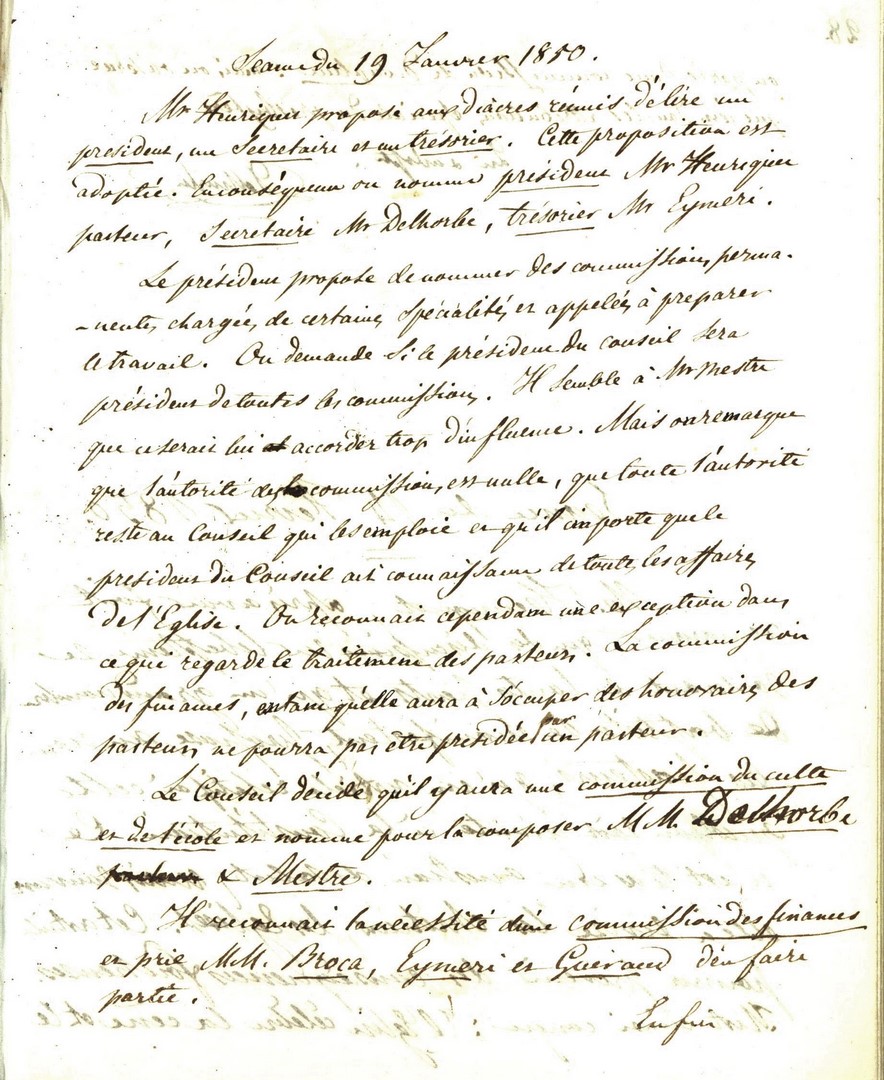 Seance du 19 Janvier 1850.
Mr Henriquer propose aux diacres réunis d'élire un
président, un Secretaire et un trésorier. Cette proposition est
adoptée. En conséquence on nomme président Mr Henriquer
pasteur, Secrétaire Mr Delhorbe, trésorier Mr Eymeri.
Le président propose de nommer des commissions perma-
-nentes chargées de certaines spécialités et appelées à preparer
le travail. On demande si le président du conseil sera
président de toutes les commissions. Il semble à Mr Mestre
que ce serait lui accorder trop d'influence. Mais on remarque
que l'autorité des commissions est nulle, que toute l'autorité
reste au Conseil qui les emploie et qu'il importe que le
president du Conseil ait connaissance de toutes les affaires
de l'Eglise. On reconnait cependant une exception dans
ce qui regarde le traitement des pasteurs. La commission
des finances, entant qu'elle aura à s'occuper des honoraires des
pasteurs ne pourra pas être presidée par un pasteur.
Le Conseil décide qu'il y aura une commission du culte
et de l'école et nomme pour la composer M M. Delhorbe
pasteur & Mestre.
Il reconnait la nécessité d'une commission des finances
et prie M.M. Broca, Eymeri et Guéraud d'en faire
partie.
Enfin